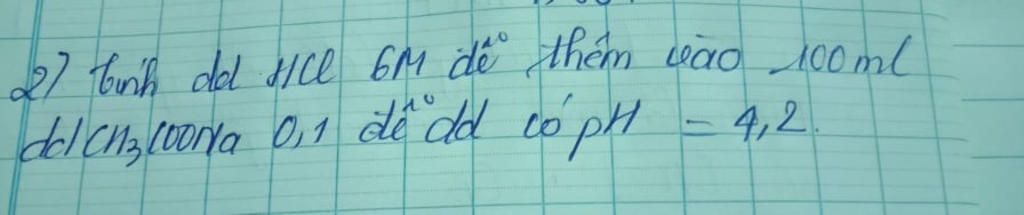 2) tính dd HCl 6M để thêm vào 100ml
dd CH3COONa 0,1 để dd có pH = 4,2.